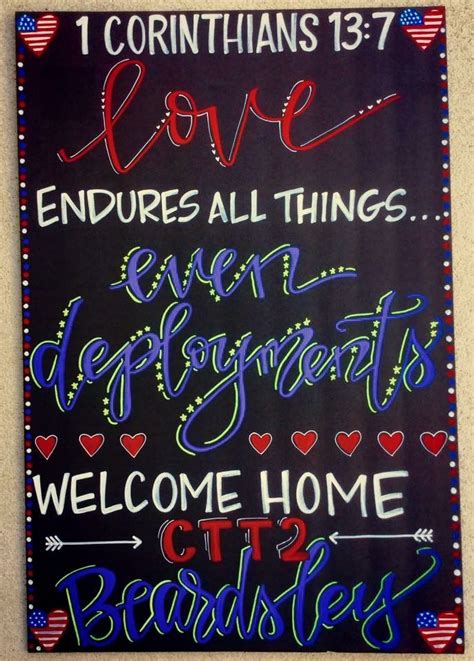 1 CORINTHIANS 13:7
love
ENDURES ALL THINGS...
even
deployments
WELCOME HOME
CTT2
Beardsley